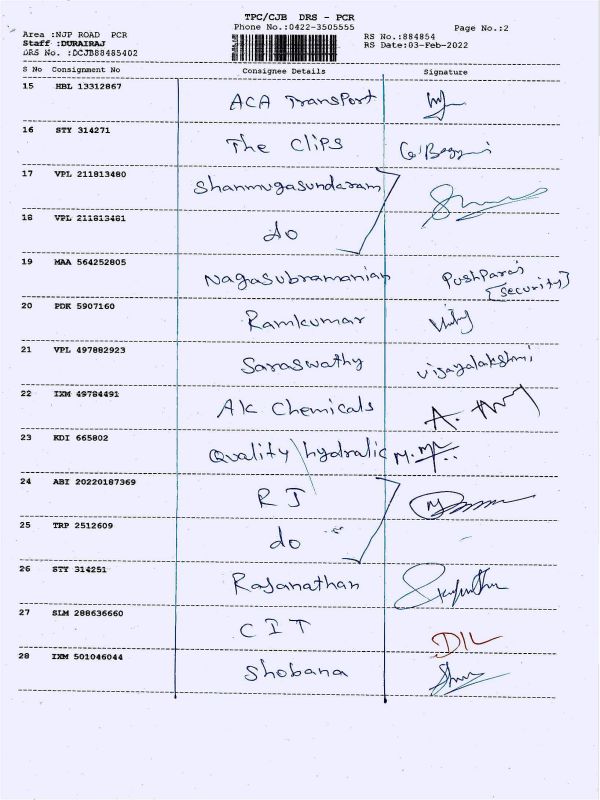 TPC/CJB DRS - PCR
Phone No.:0422-3505555
Page No.:2
Area :NJP ROAD PCR
Staff :DURAIRAJ
DRS No. :DCJB88485402
RS No.:884854
RS Date:03-Feb-2022
S No Consignment No Consignee Details Signature
15 HBL 13312867 ACA Transport
16 STY 314271 The Clips
17 VPL 211813480 Shanmugasundaram
18 VPL 211813481 do
19 MAA 564252805 Nagasubramanian PushParaj
[Security]
20 PDK 5907160 Ramkumar
21 VPL 497882923 Saraswathy vijayalakshmi
22 IXM 49784491 AK Chemicals
23 KDI 665802 Quality hydralic
24 ABI 20220187369 RJ
25 TRP 2512609 do
26 STY 314251 Rajanathan
27 SLM 288636660 CIT
28 IXM 501046044 Shobana